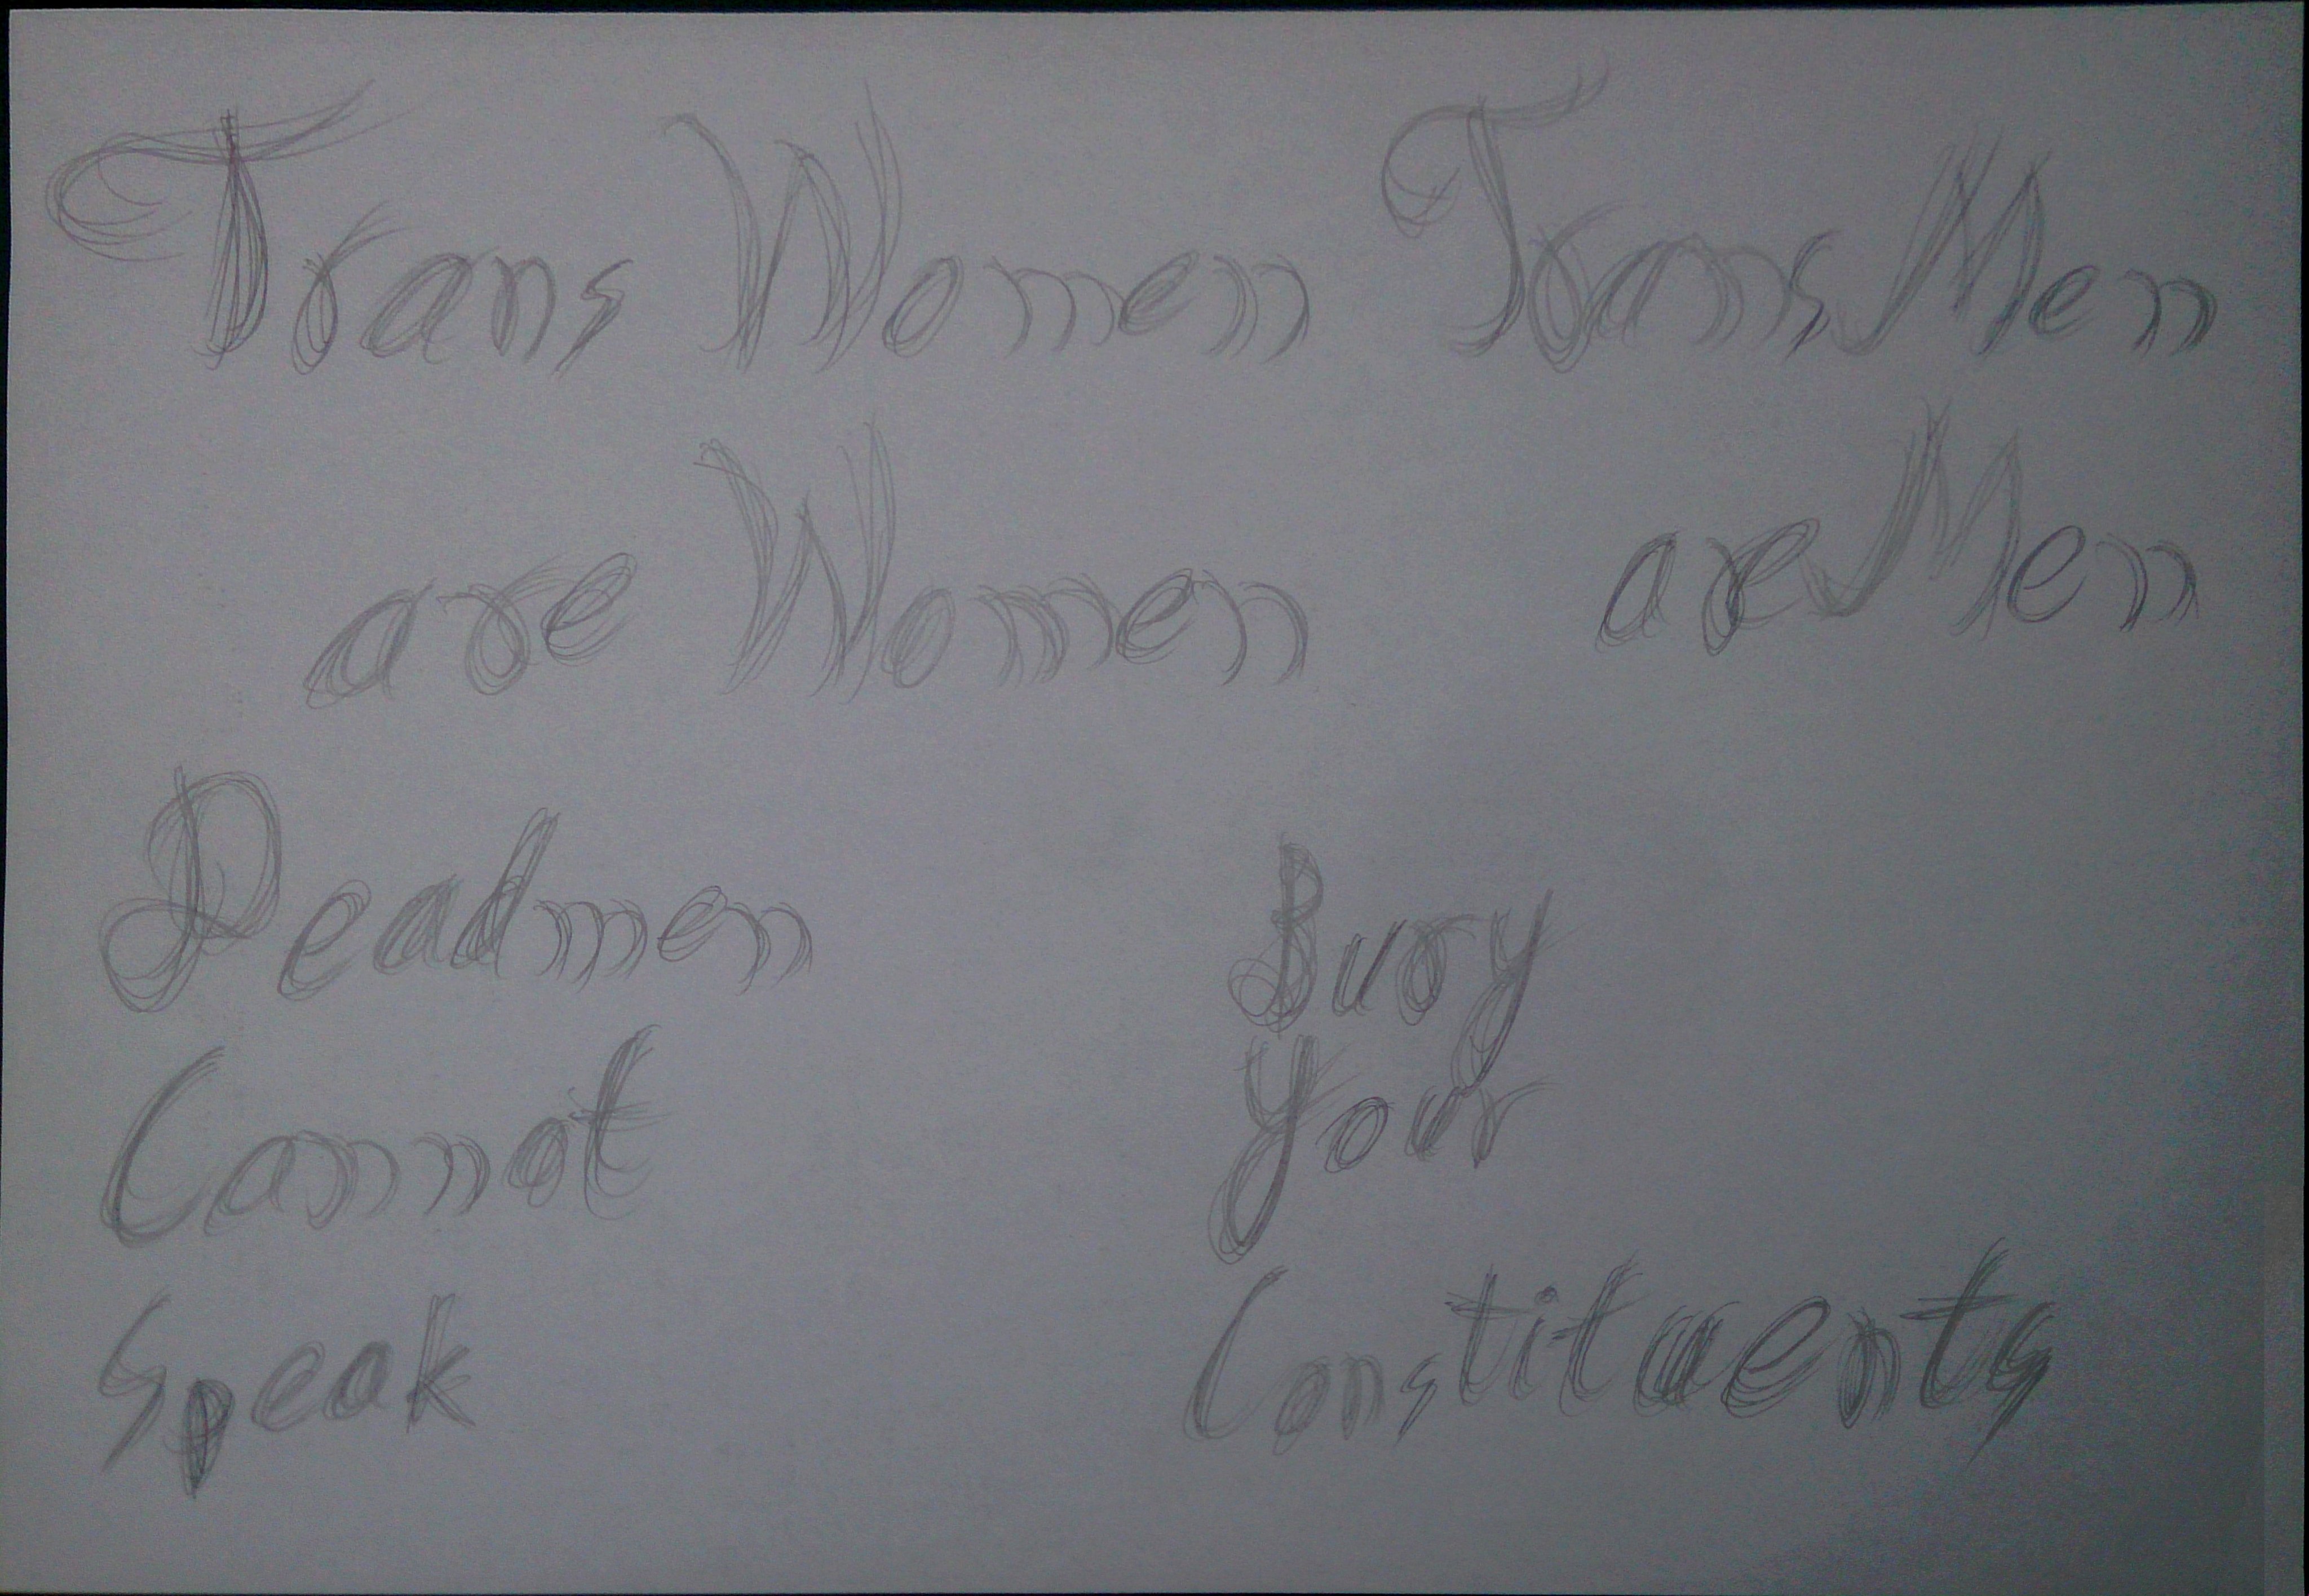 Trans Women
are Women
Trans Men
are Men
Deadmen
Cannot
Speak
Bury
Your
Constituents